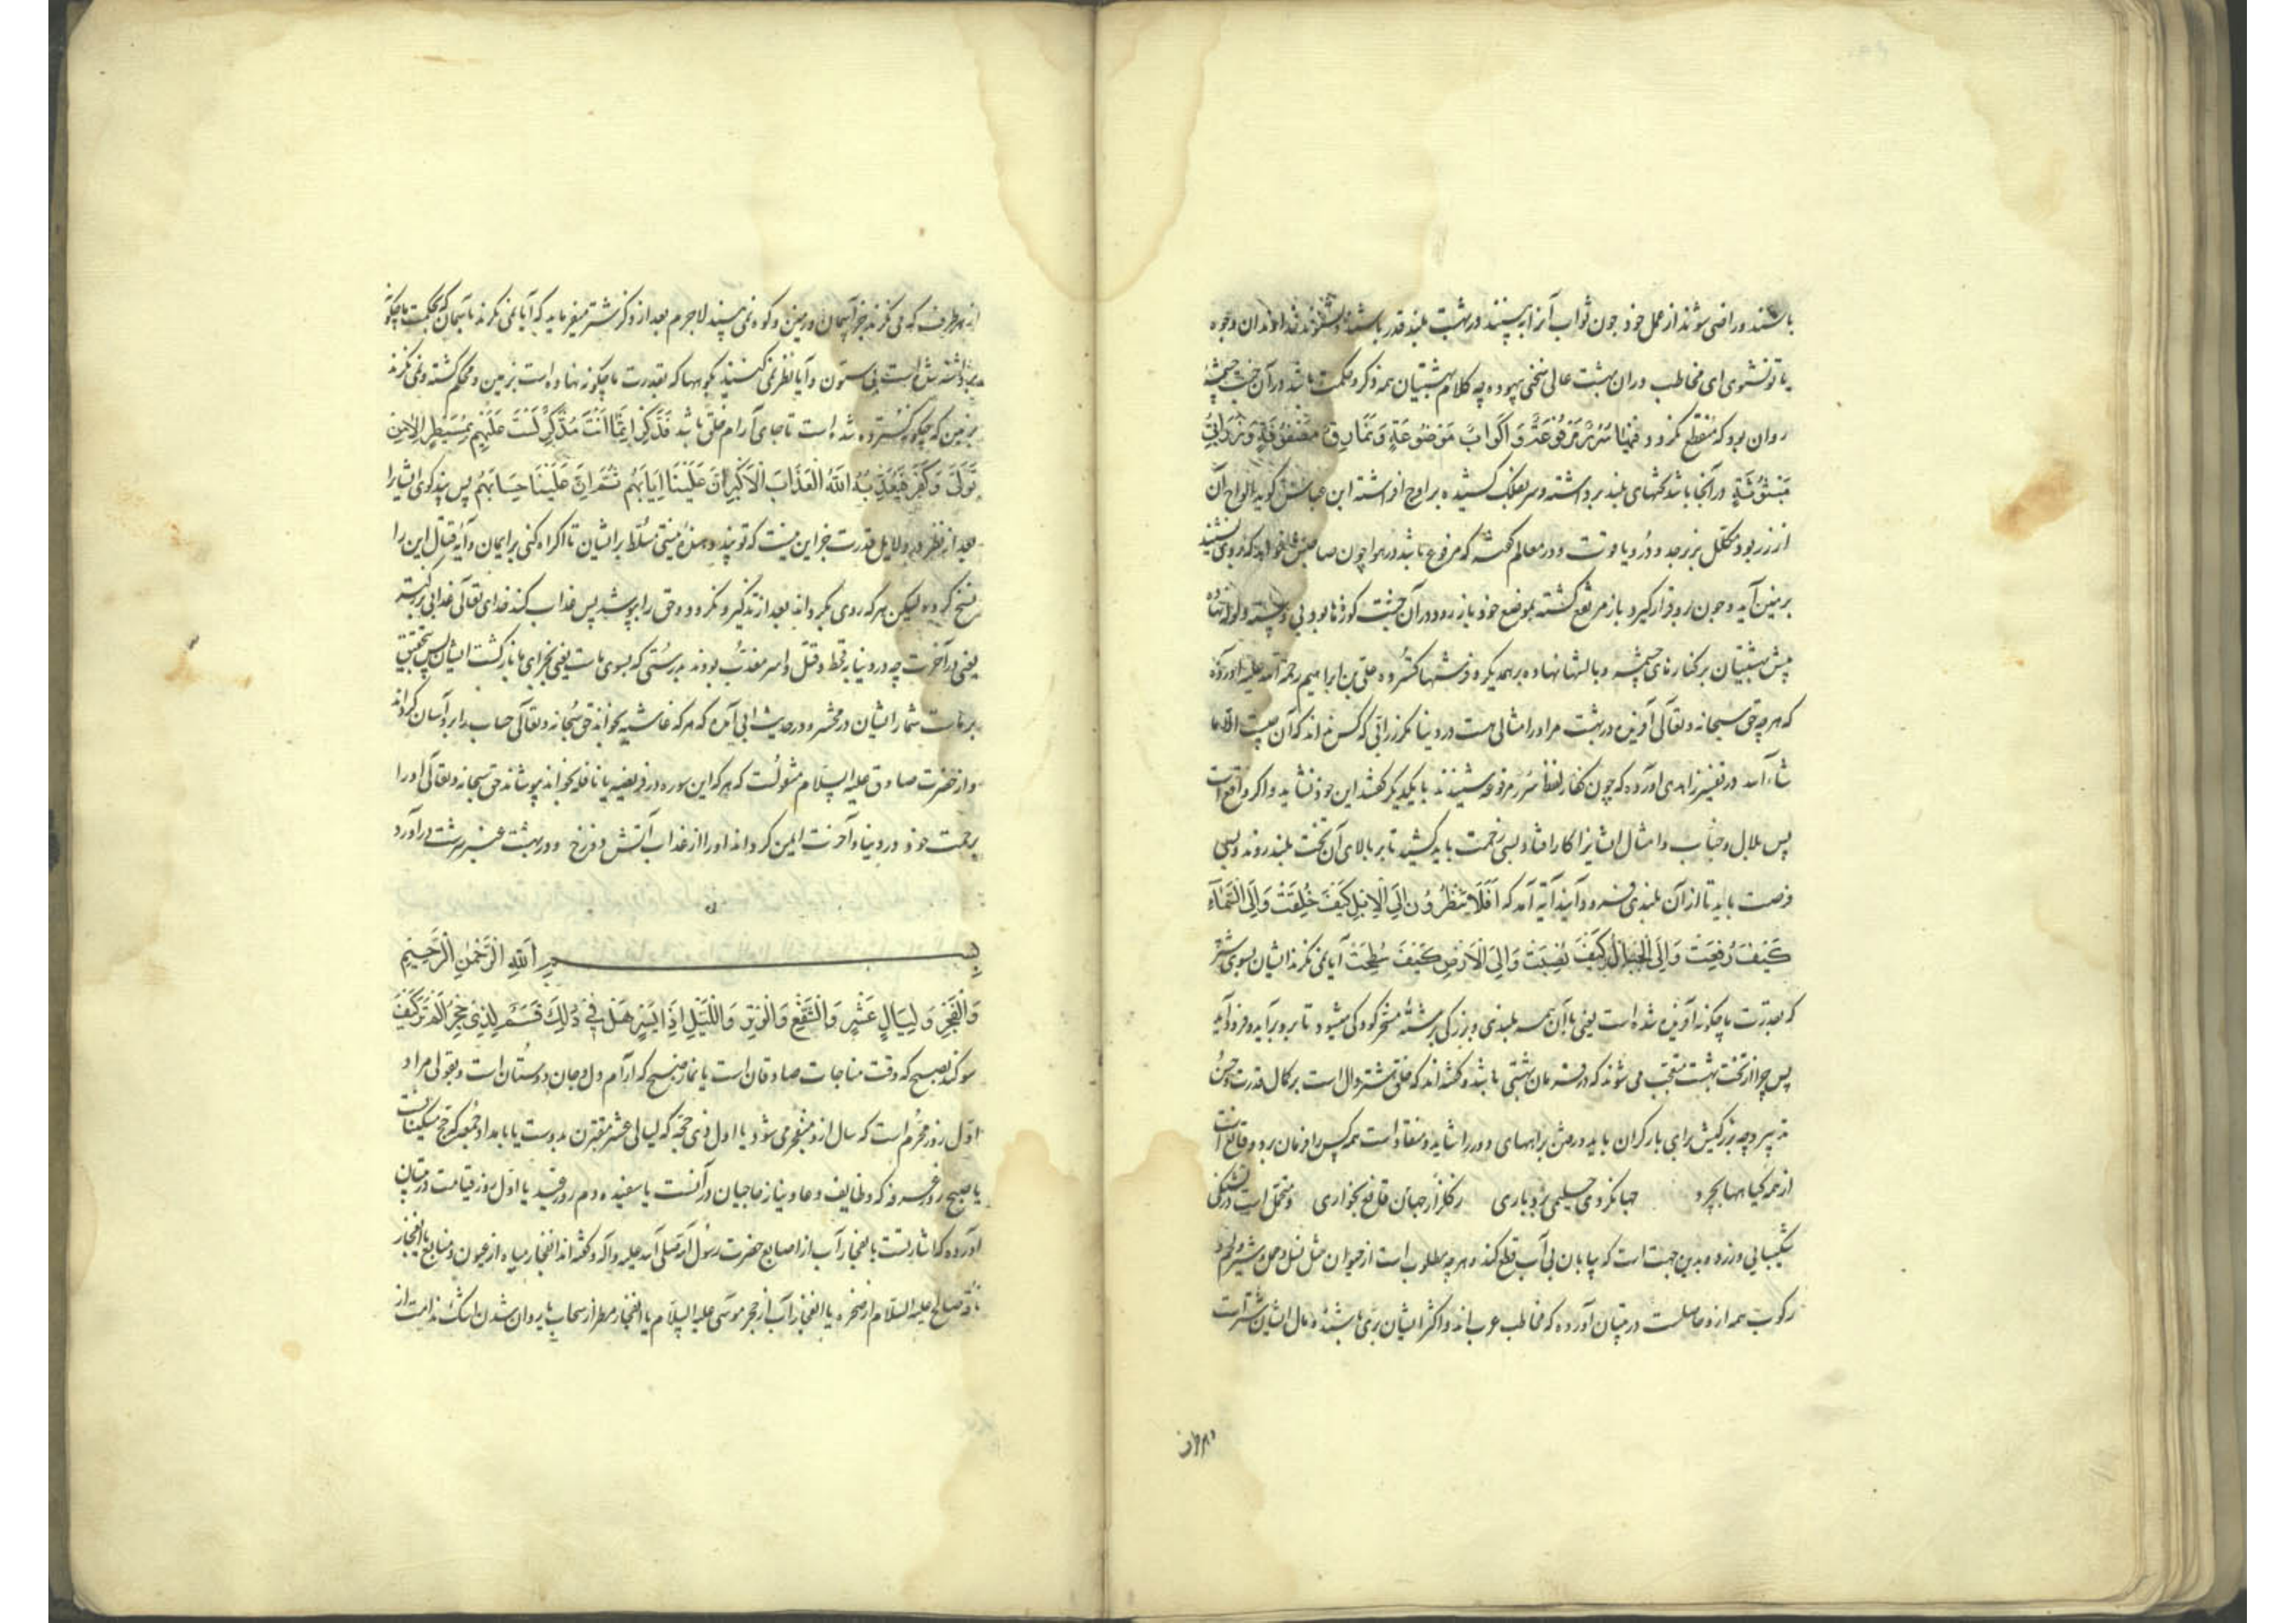 باشند و راضی شوند از عمل خود چون ثواب آنرا به بینند در بهشت بلند قدر باشند و نشنوند خداوندان وجوه
یا تو نشنوی ای مخاطب دران بهشت عالی سخنی بیهوده چه کلام بهشتیان همه ذکر و حکمت باشد در آن جنت چشمهٔ
روان بود که منقطع نکردد فِيهَا سُرُرٌ مَرْفُوعَةٌ وَأَكْوَابٌ مَوْضُوعَةٌ وَنَمَارِقُ مَصْفُوفَةٌ وَزَرَابِيُّ
مَبْثُوثَةٌ در آنجا باشد تختهای بلند برداشته و سر بفلک کشیده بر اوج افراشته ابن عباس کوید الواح آن
از زر بود مکلل بزبرجد و در و یاقوت و در معالم کفته که مرفوع باشد در هوا چون صاحبش خواهد که بر وی نشیند
بر زمین آید و چون برو قرار کیرد باز مرتفع کشته بموضع خود باز رود در آن جنت کوزها بود بی دسته و لوله نهاده
پیش بهشتیان بر کنارهای چشمه و بالشها نهاده بر همدیکر و فرشتها کسترده علی بن ابراهیم رحمة الله علیه آورده
که هر چه حق سبحانه و تعالی آفریده در بهشت مر او را مثالی هست در دنیا مکر زرابی که کس نداند که آن چیست الا ما
شاء الله در تفسیر زاهدی آورده که چون کفار لفظ سرر مرفوعه شنیدند با یکدیکر کفتند این خود نشاید و اکر واقع است
پس بلال و خباب و امثال ایشانرا کار افتاد بسی زحمت باید کشید تا بر بالای آن تخت بلند روند و بسی
فرصت باید تا از آن بلندی فرود آیند آیه آمد که أَفَلَا يَنْظُرُونَ إِلَى الْإِبِلِ كَيْفَ خُلِقَتْ وَإِلَى السَّمَاءِ
كَيْفَ رُفِعَتْ وَإِلَى الْجِبَالِ كَيْفَ نُصِبَتْ وَإِلَى الْأَرْضِ كَيْفَ سُطِحَتْ آیا نمی نکرند ایشان بسوی شتر
که بقدرت ما چکونه آفریده شده است یعنی با آن همه بلندی و بزرکی برشته مسخر کودکی میشود تا برو برآید و فرود آید
پس چرا از تخت بهشت متعجب می شوند که در فرمان بهشتی باشد و کفته اند که خلق شتر دال است بر کمال قدرت و حسن
تدبیر و چه بزرکیش برای بار کران باید و رفتن براههای دور را شاید و منقاد است همه کس را فرمان برد و قانع است
از همه کیاهها بچرد جهانکردی حلیمی بردباری ز کلزار جهان قانع بخواری و متحمل است در تشنکی
شکیبایی ورزد و بدین جهت است که بیابان بی آب قطع کند و هر چه مطلوب است از حیوان مثل نسل و حمل و شیر و لحم و
رکوب همه ازو حاصلست در تبیان آورده که مخاطب عرب اند و اکثر ایشان بری باشند و مال ایشان شتر است
از هر طرف که می نکرند جز آسمان و زمین و کوه نمی بینند لاجرم بعد از ذکر شتر میفرماید که آیا نمی نکرند بآسمان که بحکمت ما چکونه
برداشته شده است بی ستون و آیا نظر نمی کنند بکوهها که بقدرت ما چکونه نهاده است بزمین و محکم کشته و نمی نکرند
بزمین که چکونه کسترده شده است تا جای آرام خلق باشد فَذَكِّرْ إِنَّمَا أَنْتَ مُذَكِّرٌ لَسْتَ عَلَيْهِمْ بِمُسَيْطِرٍ إِلَّا مَنْ
تَوَلَّى وَكَفَرَ فَيُعَذِّبُهُ اللَّهُ الْعَذَابَ الْأَكْبَرَ إِنَّ إِلَيْنَا إِيَابَهُمْ ثُمَّ إِنَّ عَلَيْنَا حِسَابَهُمْ پس پند کوی ایشانرا
بعد از نظر در دلایل قدرت جز این نیست که تو پند دهندهٔ نیستی مسلط بر ایشان تا اکراه کنی بر ایمان و آیه قتال این را
نسخ کرده لیکن هر که روی بکرداند بعد از تذکیر و نکرود و حق را بپوشد پس عذاب کند خدای تعالی عذابی بزرکتر
یعنی در آخرت چه در دنیا بقحط و قتل و اسر معذب بودند بدرستی که بسوی ماست یعنی بجزای ما بازکشت ایشان پس بتحقیق
بر ماست شمار ایشان در محشر و در حدیث ابی آمده که هر که غاشیه بخواند حق سبحانه و تعالی حساب را برو آسان کرداند
و از حضرت صادق علیه السلام منقولست که هر که این سوره در فریضه یا نافله بخواند بپوشاند حق سبحانه و تعالی او را
برحمت خود در دنیا و آخرت ایمن کرداند او را از عذاب آتش دوزخ و در بهشت عنبر سرشت درآورد
بِسْمِ اللَّهِ الرَّحْمَٰنِ الرَّحِيمِ
وَالْفَجْرِ وَلَيَالٍ عَشْرٍ وَالشَّفْعِ وَالْوَتْرِ وَاللَّيْلِ إِذَا يَسْرِ هَلْ فِي ذَٰلِكَ قَسَمٌ لِذِي حِجْرٍ أَلَمْ تَرَ كَيْفَ
سوکند بصبح که وقت مناجات صادقان است یا نماز صبح که آرام دل و جان دوستان است و بقولی مراد
اول روز محرم است که سال ازو منفجر می شود یا اول ذی حجه که لیالی عشر مقترن بدوست یا بامداد جمعه که حج مسکینانست
یا صبح روز عرفه که وظایف دعا و نیاز حاجیان در آنست یا سفیده دم روز عید یا اول روز قیامت در تبیان
آورده که اشارتست بانفجار آب از اصابع حضرت رسول الله صلی الله علیه وآله و کفته اند انفجار میاه از عیون و منابع یا انفجار
ناقه صالح علیه السلام از صخره یا انفجار آب از حجر موسی علیه السلام یا انفجار مطر از سحاب یا روان شدن اشک ندامت از